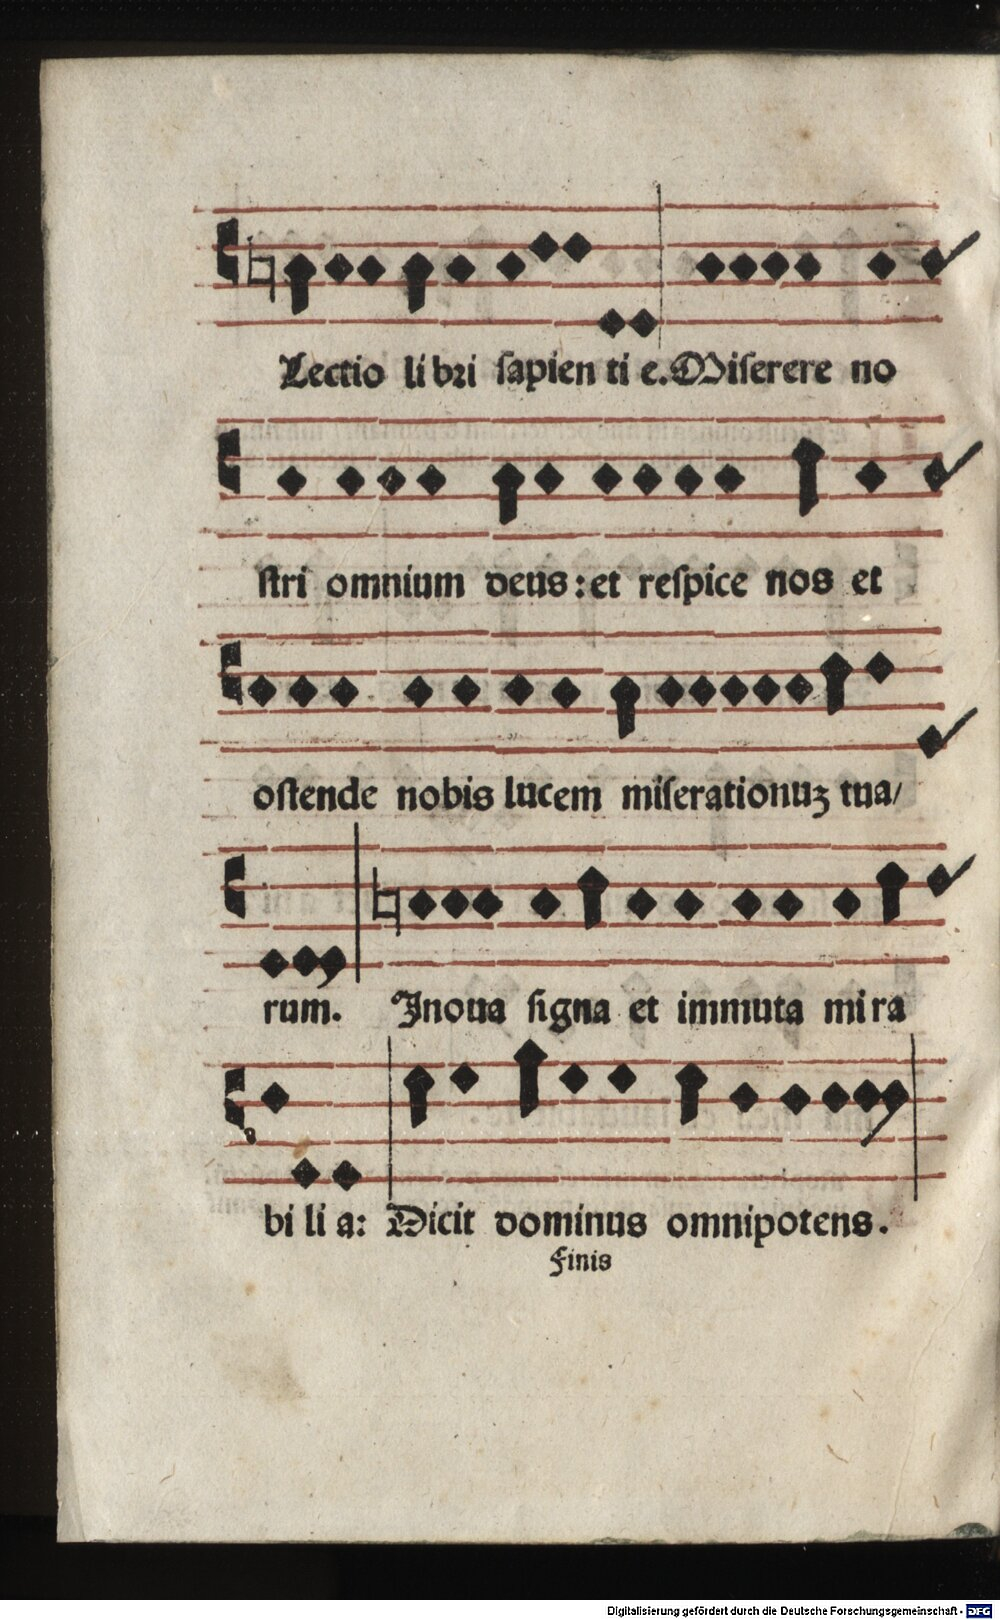 Lectio li bꝛi ſapien ti e. Miſerere no
ſtri omnium deus: et reſpice nos et
oſtende nobis lucem miſerationuꝫ tua/
rum. Jnoua ſigna et immuta mi ra
bi li a: Dicit dominus omnipotens.
Finis
Digitalisierung gefördert durch die Deutsche Forschungsgemeinschaft - DFG